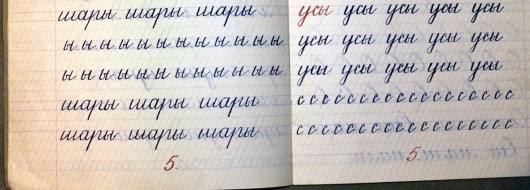 шары шары шары
ы ы ы ы ы ы ы ы ы ы ы ы
ы ы ы ы ы ы ы ы ы ы ы ы
шары шары шары
шары шары шары
5.
усы усы усы усы усы
усы усы усы усы усы
усы усы усы усы усы
с с с с с с с с с с с с с с с с с
с с с с с с с с с с с с с с с с с
5.